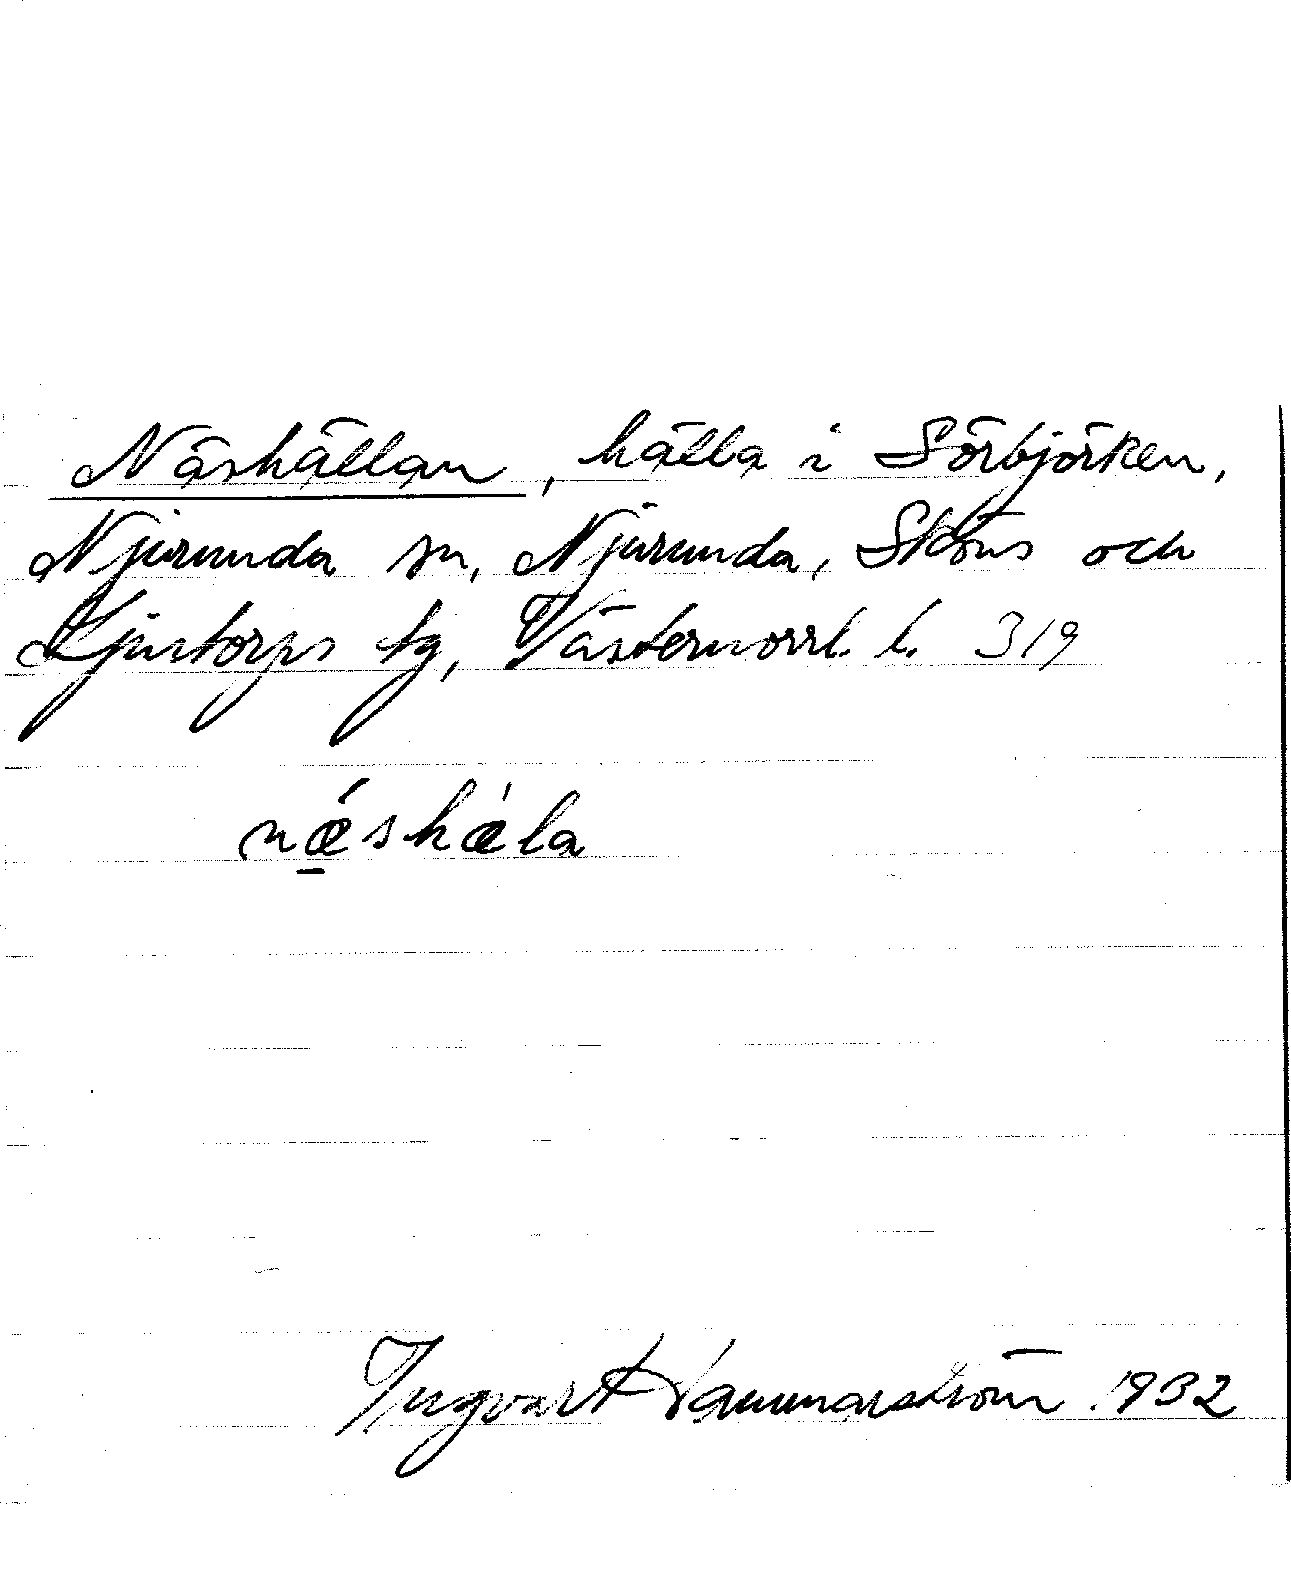 Näshällan, hälla i Sörbjörken,
Njurunda sn, Njurunda, Sköns och
Ljustorps tg, Västernorrl. l. 319
nǽshæ̀la
Ingvart Hammarström 1932